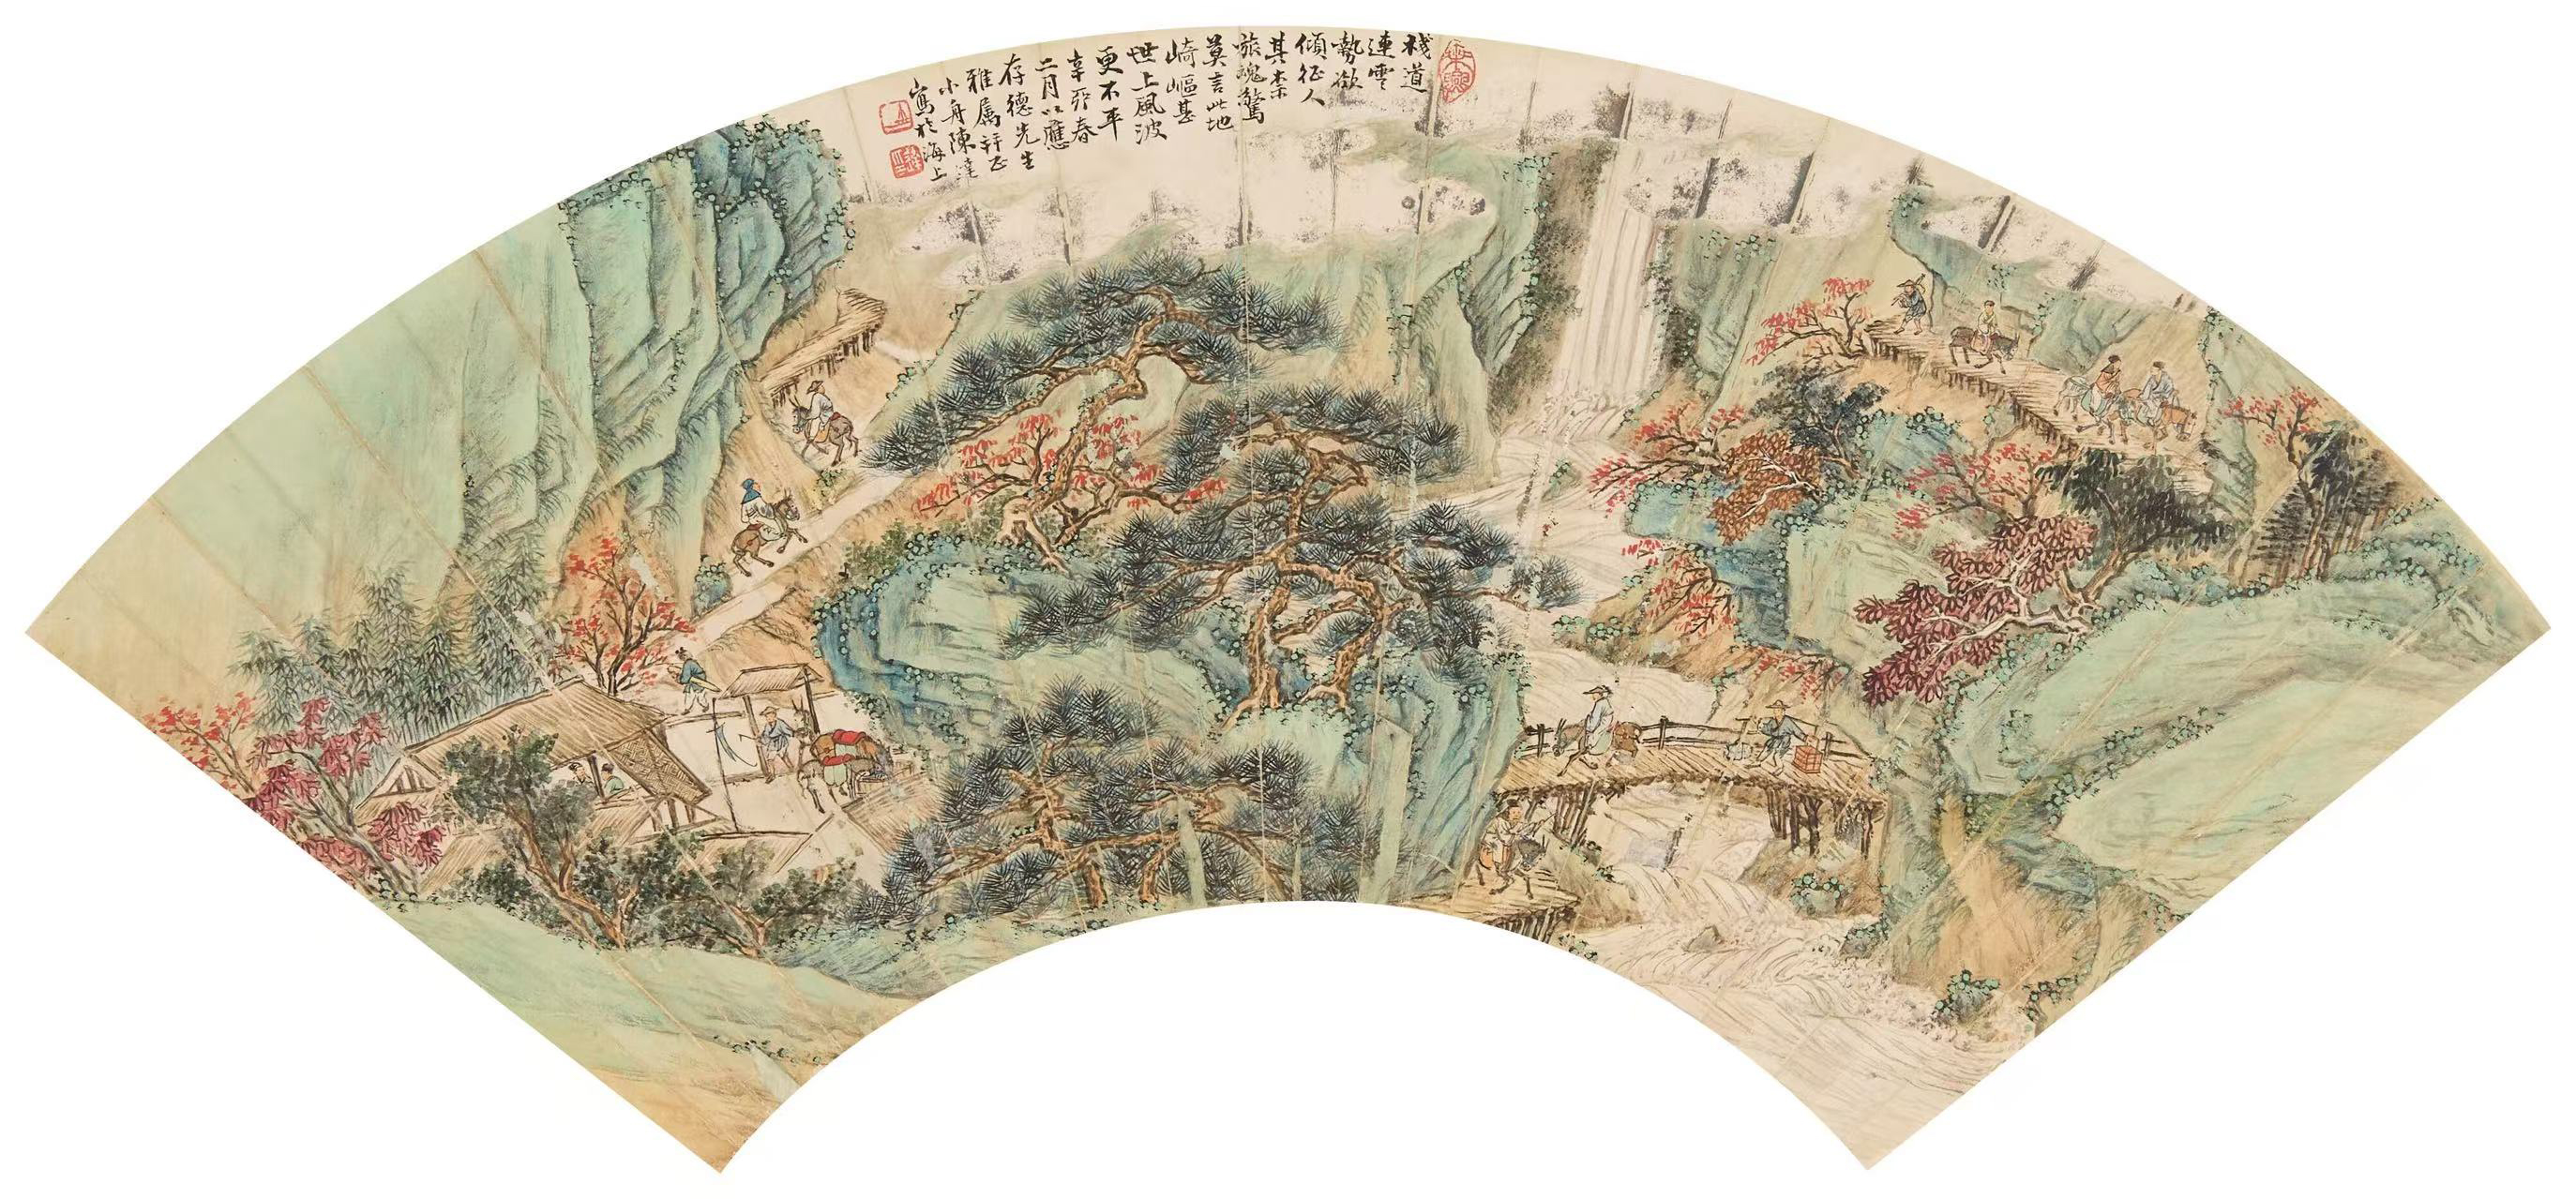 棧道
連雲
勢欲
傾征人
其柰
旅魂驚
莫言此地
崎嶇甚
世上風波
更不平
辛亥春
二月以應
存德先生
雅属評正
小舟陳達
寫於海上